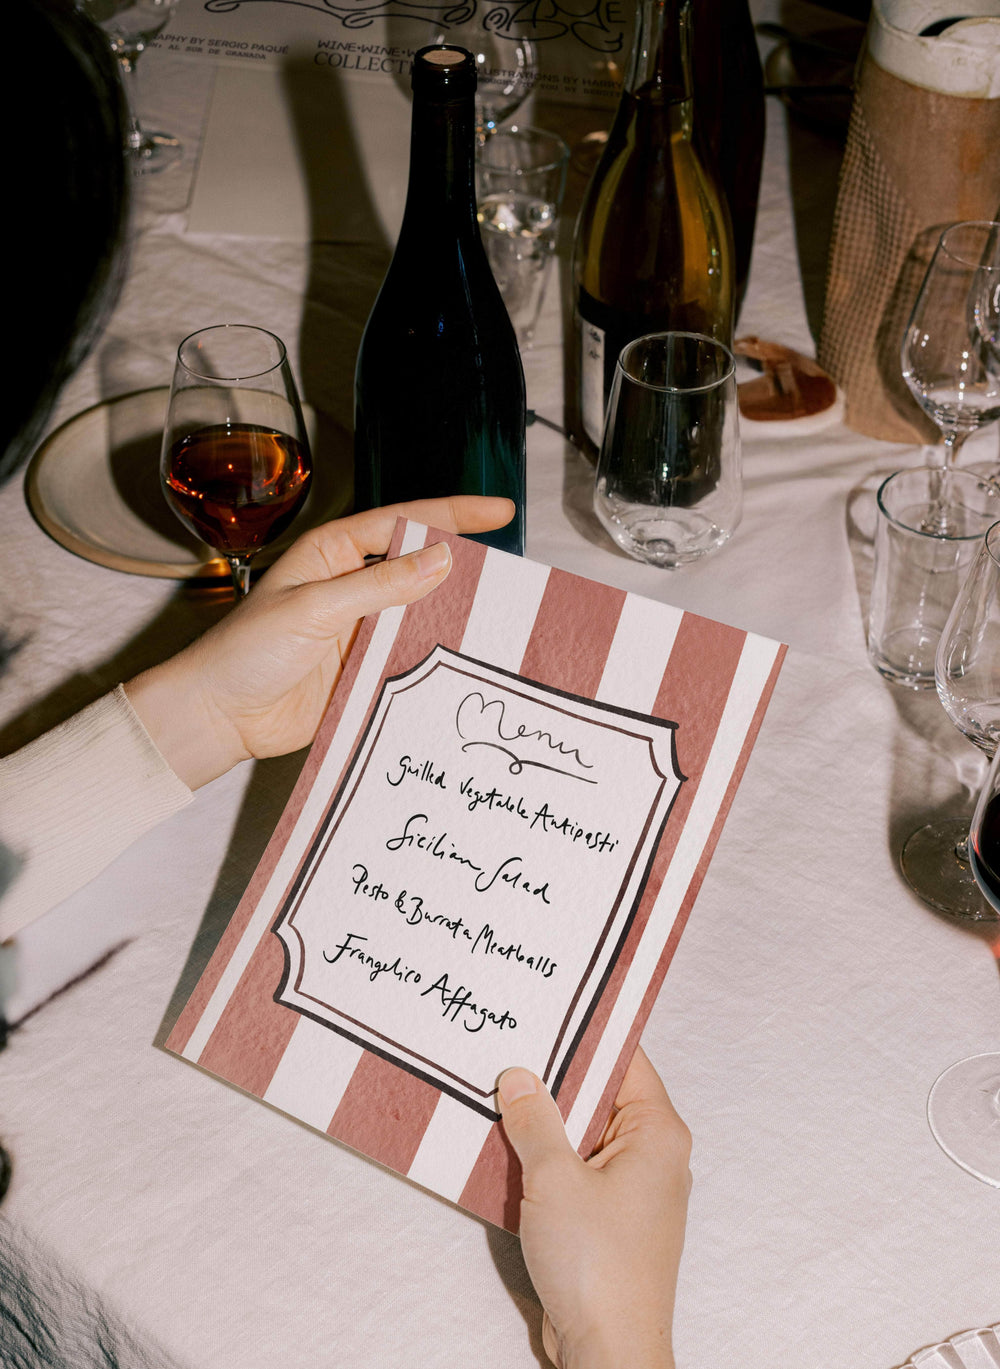 GRAPHY BY SERGIO PAQUÉ
AL SUR DE GRANADA
WINE•WINE•W
COLLECT
LUSTRATIONS BY HARRY
TO YOU BY
Menu
Grilled Vegetable Antipasti
Sicilian Salad
Pesto & Burrata Meatballs
Frangelico Affagato